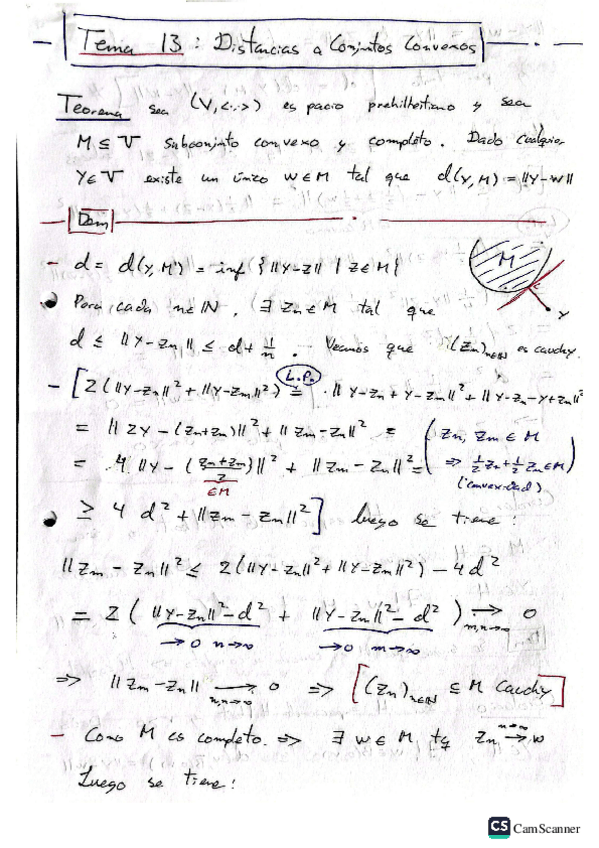 Tema 13: Distancias a Conjuntos Convexos
Teorema sea (V,<·,·>) espacio prehilbertiano y sea
M ⊆ V subconjunto convexo y completo. Dado cualquier
Y∈V existe un único w∈M tal que d(Y,M) = ||Y-w||
Dem
- d = d(Y,M) = inf {||Y-z|| | z∈M}
M
Y
• Para cada n∈IN, ∃ zn∈M tal que
d ≤ ||Y-zn|| ≤ d + 1/n. Veamos que (zn)n∈IN es cauchy.
- [2(||Y-zn||² + ||Y-zm||²) = (L.P.) ||Y-zn+Y-zm||² + ||Y-zn-Y+zm||²
= ||2Y-(zn+zm)||² + ||zm-zn||² = (zn, zm ∈ M
= 4||Y-(zn+zm)/2||² + ||zm-zn||² = ⇒ 1/2 zn + 1/2 zm ∈ M)
∈M (convexidad)
• ≥ 4d² + ||zm-zn||²] luego se tiene:
||zm-zn||² ≤ 2(||Y-zn||² + ||Y-zm||²) - 4d²
= 2(||Y-zn||²-d² + ||Y-zm||²-d²) → 0 m,n→∞
→0 n→∞ →0 m→∞
⇒ ||zm-zn|| → 0 m,n→∞ ⇒ [(zn)n∈IN ⊆ M Cauchy]
- Como M es completo. ⇒ ∃ w∈M tq zn → w n→∞
Luego se tiene:
CS CamScanner